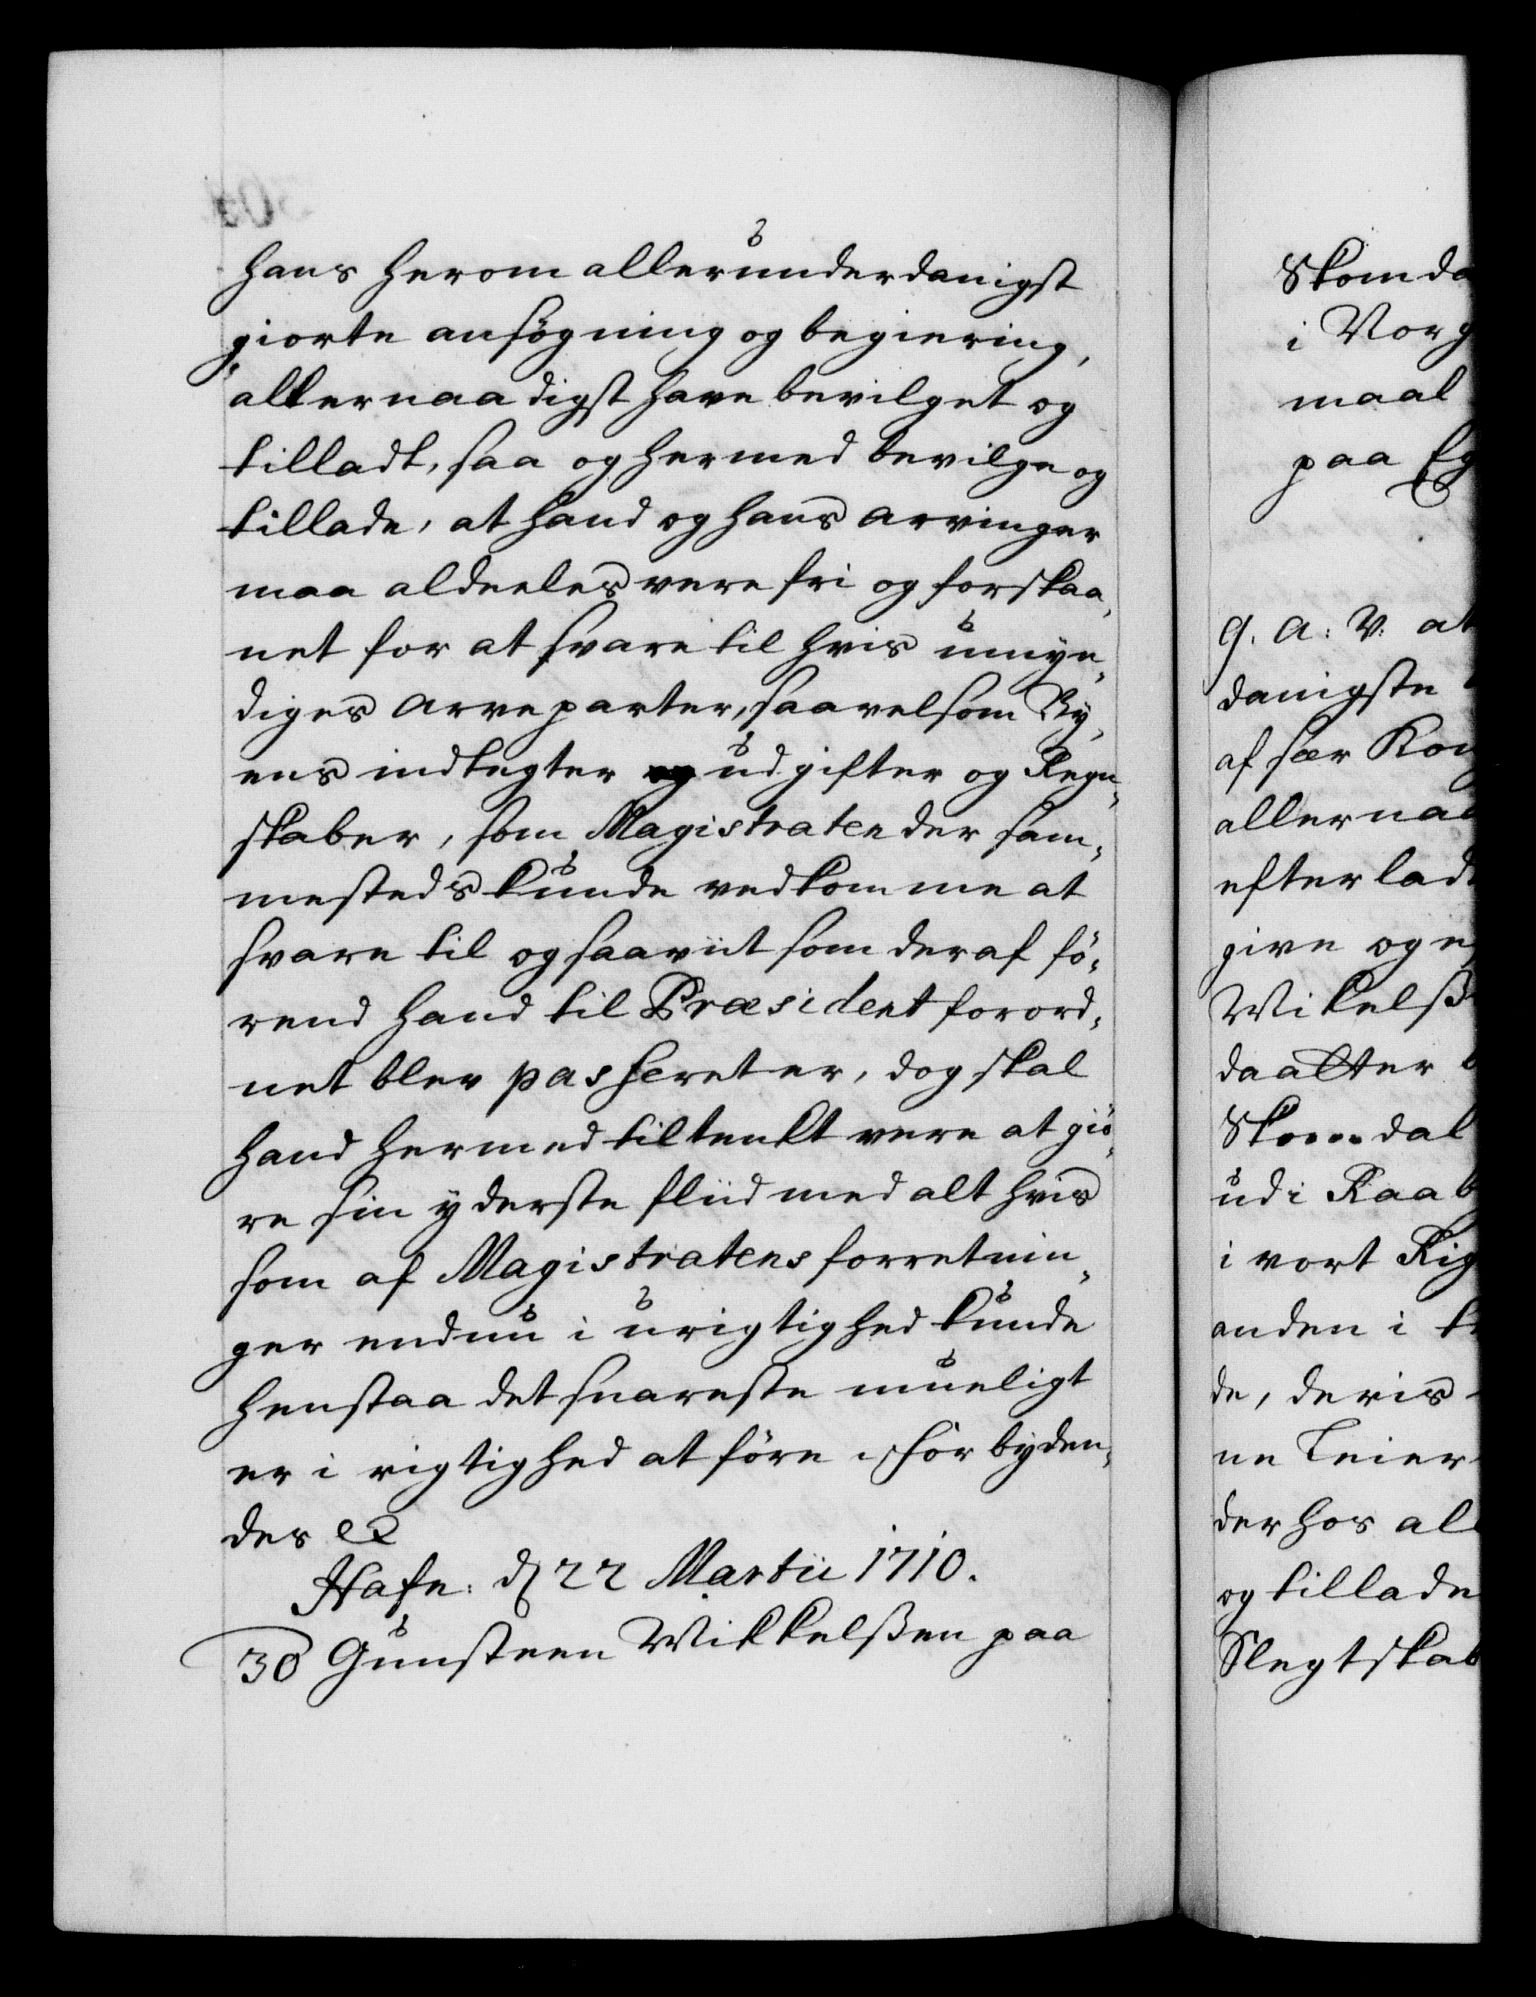 hans herom allerunderdanigst
giorte ansögning og begiering,
allernaadigst have bevilget og
tilladt, saa og hermed bevilge og
tillade, at hand og hans arvinger
maa aldeeles vere fri og forskaa„
net for at svare til hvis umyn„
diges arveparter, saavelsom By„
ens indtegter og udgifter og Regn„
skaber, som Magistraten der sam„
mesteds kunde vedkomme at
svare til og saaviit som deraf fö„
rend hand til Præsident forord„
net blev passeret er, dog skal
hand hermed tiltenkt vere at giö„
re sin yderste fliid med alt hvis
som af Magistratens forretnin„
ger endnu i urigtighed kunde
henstaa det snareste mueligt
er i rigtighed at före. Forbyden„
des &
Hafn: d 22 Martii 1710.
30 Gunsteen Mikkelßen paa
Skomda
i Norg
maal
paa Eg
G. A: V: at
danigste
af sær Kon
allernaa
efterlad
give og e
Mikelß
daatter
Skomdal
udi Raab
i vort Rig
anden i
de, deris
ne Leier
derhos al
og tillade
Slegtskab